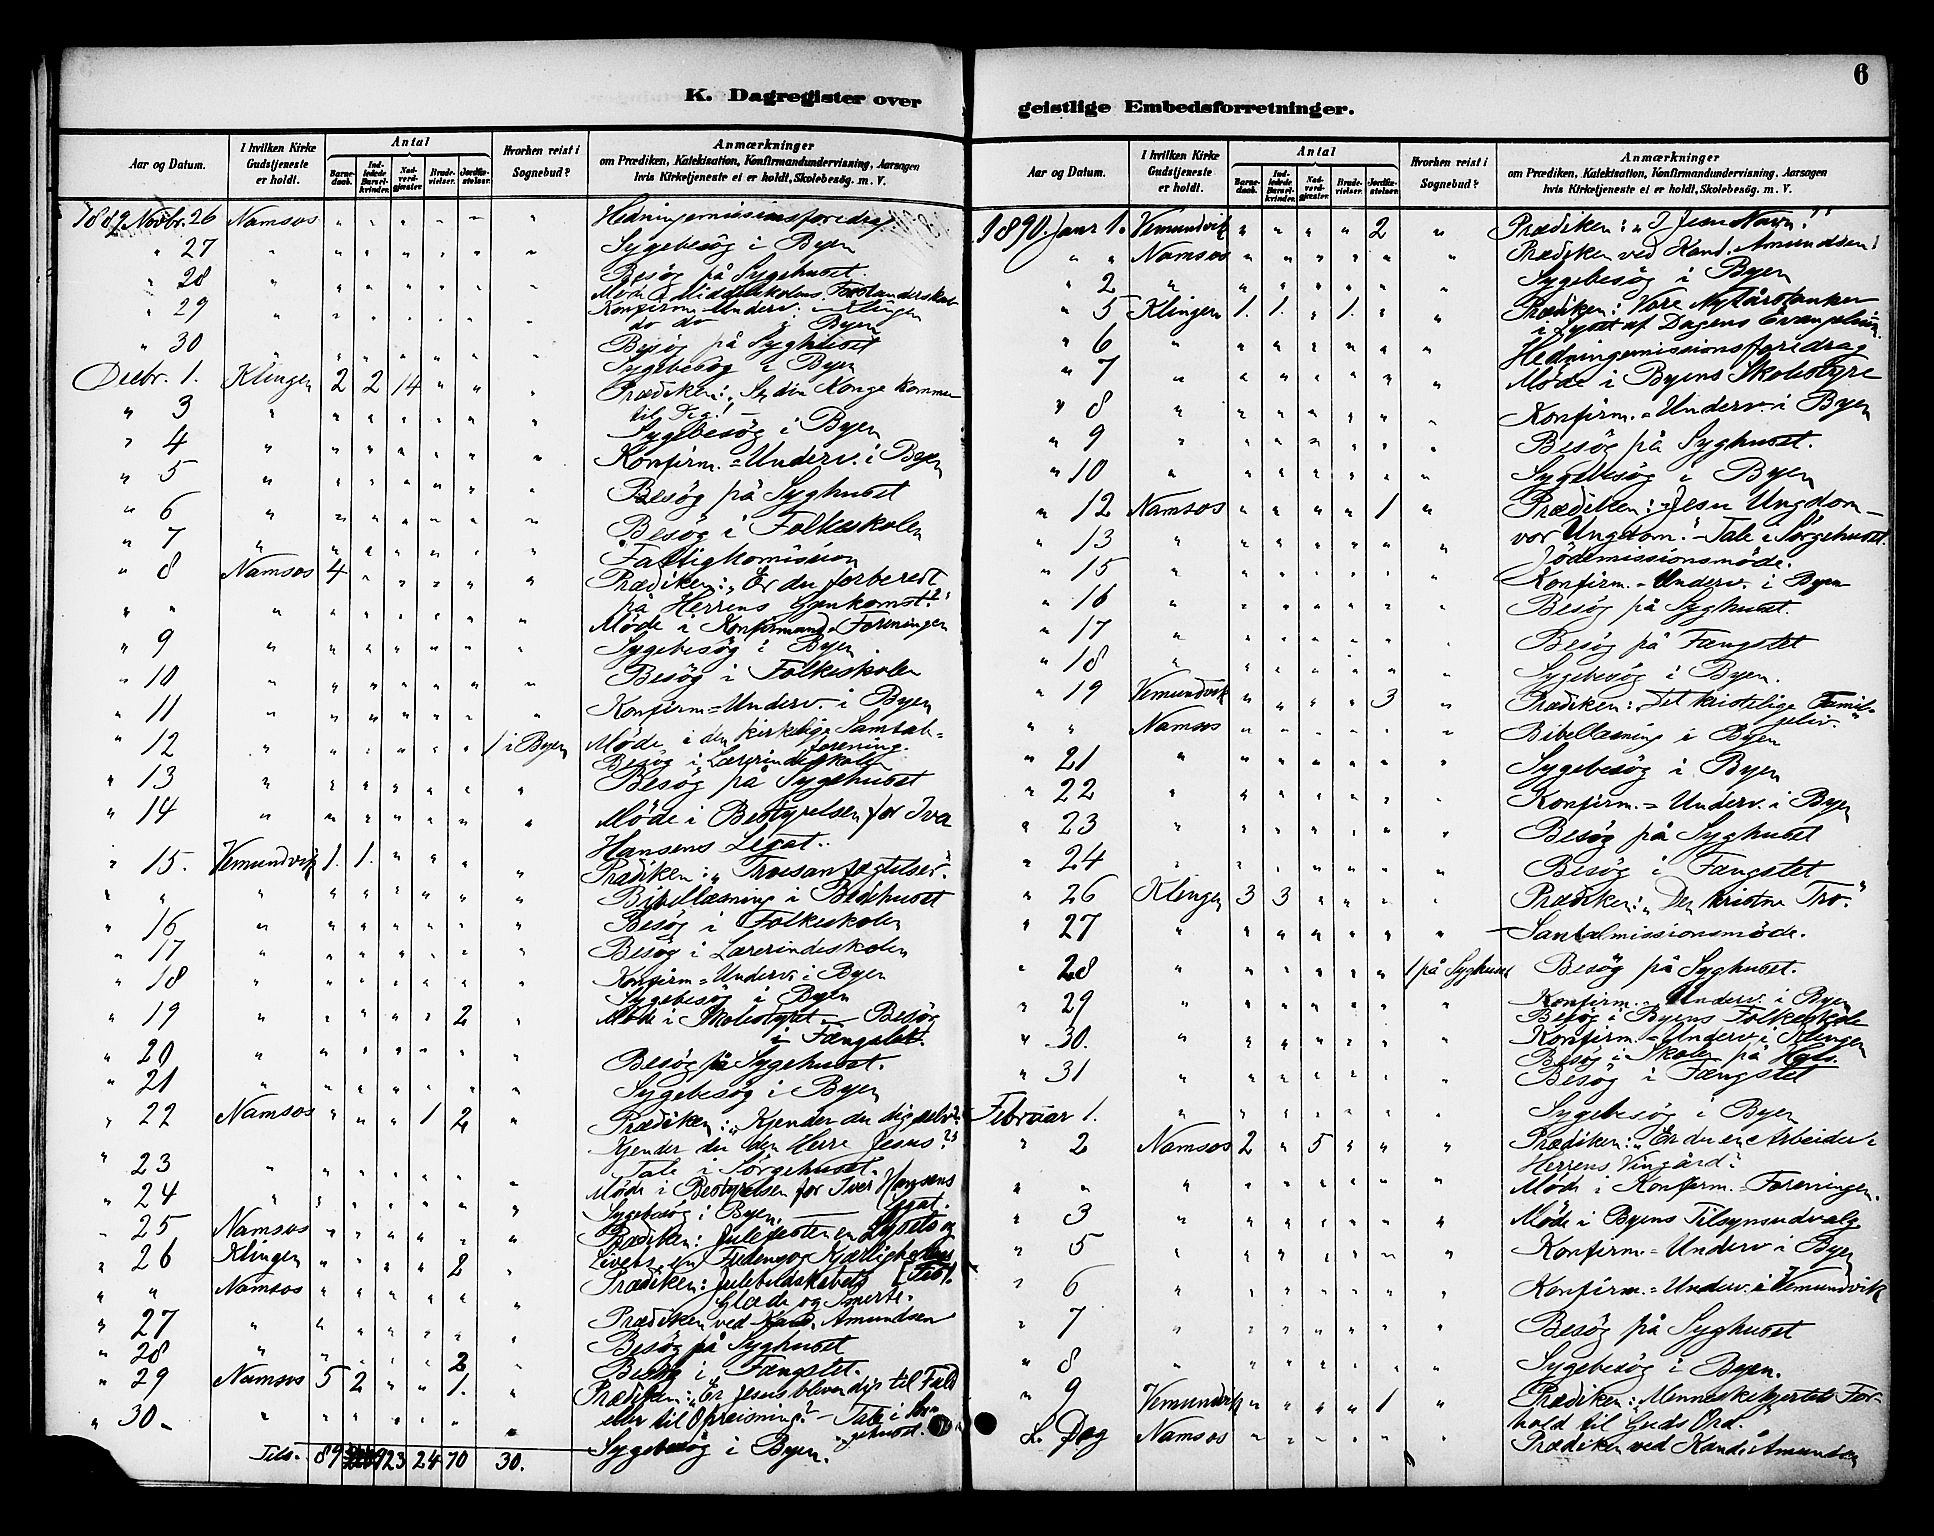 6
K. Dagregister over
geistlige Embedsforretninger.
Aar og Datum.
I hvilken Kirke Gudstjeneste er holdt.
Antal
Barnedaab.
Indledede Barselkvinder.
Nadverdgjæster.
Brudevielser.
Jordfæstelser.
Hvorhen reist i Sognebud?
Anmærkninger
om Prædiken, Katekisation, Konfirmandundervisning, Aarsagen
hvis Kirketjeneste ei er holdt, Skolebesøg. m. V.
Novbr. 26 Namsos " " " " " " Hedningemissionsforedrag
" 27 " " " " " " " Sygebesög i Byen
" 28 " " " " " " " Besög på Sygehuset.
Möde i Middelskolens Forstanderskab
" 29 " " " " " " " Konfirm-Underv. i Klingen
do do i Byen
" 30 Besög på Syghuset
Sygebesög i Byen
Decbr. 1. Klingen 2 2 14 " " " Prædiken: "Se din Konge kommer
til Dig!
" 3 " " " " " " " Sygebesög i Byen
" 4 " " " " " " " Konfirm.=Underv. i Byen
" 5 " " " " " " " Besög på Syghuset
" 6 " " " " " " " Besög i Folkeskolen
" 7 " " " " " " " Fattigkomission
" 8 Namsos 4 " " " " " Prædiken: "Er du forberedt
på Herrens Gjenkomst?"
" " " " " " " " " Möde i Konfirmand-Foreningen
" 9 " " " " " " " Sygebesög i Byen
" 10 " " " " " " " Besög i Folkeskolen
" 11 " " " " " " " Konfirm=Underv. i Byen
" 12 " " " " " " 1 i Byen Möde i den kirkelige Samtale-
forening.
Besög i Lærerindeskolen
" 13 " " " " " " " Besög på Sygehuset
" 14 " " " " " " " Möde i Bestyrelsen for Iver
Hansens Legat.
" 15. Vemundvik 1. 1. " " " " Prædiken: "Troesanfægtelser."
" " " " " " " " " Bibellæsning i Bedehuset
" 16 " " " " " " " Besög i Folkeskolen
" 17 " " " " " " " Besög i Lærerindeskolen
" 18 " " " " " " " Konfirm=Underv. i Byen
Sygebesög i Byen
" 19 " " " " " 2 " Möde i Skolestyret — Besög
i Fængslet.
" 20 " " " " " " " Besög på Sygehuset.
" 21 " " " " " " " Sygebesög i Byen
" 22 Namsos " " " 1 2 " Prædiken: "Kjender du dig selv?
Kjender du den Herre Jesus?"
" 23 " " " " " " " Tale i Sörgehuset.
" 24 " " " " " " " Möde i Bestyrelsen for Iver Hansens
Legat.
Sygebesög i Byen.
" 25 Namsos " " " " " " Prædiken: Julefesten en Lysets og
Livets, en Fredens og Kjærlighedens
" 26 Klingen " " " " 2 " Prædiken: Julebudskabets
" " Namsos " " " " " " Glæde og Smerte.
" 27 " " " " " " " Prædiken ved Kand. Amundsen
Besög på Syghuset
" 28 " " " " " 2 " Besög i Fængslet.
" 29 Namsos 5 2 " " 1. " Prædiken: "Er Jesus bleven dig til Fald
eller til Opreisning?" — Tale i Sör-
gehuset.
" 30 " " " " " " " Sygebesög i Byen.
Tils. 89 23 24 70 30.
1890. Janr 1. Vemundvik " " " " 2 " Prædiken: "I Jesu Navn!"
" " Namsos " " " " " " Prædiken ved Kand. Amundsen
" 2 " " " " " " " Sygebesög i Byen
" 5 Klingen 1. 1. " 1. " " Prædiken: Vore Nytårstanker
i Lyset af Dagens Evangelium
" 6 " " " " " " " Hedningemissionsforedrag
" 7 " " " " " " " Möde i Byens Skolestyre
" 8 " " " " " " " Konfirm.=Underv. i Byen
" 9 " " " " " " " Besög på Syghuset.
" 10 " " " " " " " Sygebesög i Byen
" 12 Namsos " " " " 1 " Prædiken: "Jesu Ungdom —
vor Ungdom." — Tale i Sörgehuset.
" 13 " " " " " " " Jödemissionsmöde.
" 15 " " " " " " " Konfirm.-Underv. i Byen
" 16 " " " " " " " Besög på Syghuset.
" 17 " " " " " " " Besög på Fængslet
" 18 " " " " " " " Sygebesög i Byen.
" 19 Vemundvik " " " " 3 " Prædiken: "Det kristelige Famil-
jeliv."
" " Namsos " " " " " " Bibellæsning i Byen
" 21 " " " " " " " Sygebesög i Byen
" 22 " " " " " " " Konfirm.=Underv. i Byen
" 23 " " " " " " " Besög på Syghuset
" 24 " " " " " " " Besög i Fængslet
" 26 Klingen 3 3 " " " " Prædiken: "Den kristne Tro."
" 27 " " " " " " " Santalmissionsmöde.
" 28 " " " " " " 1 på Syghuset Besög på Syghuset.
" 29 " " " " " " " Konfirm.-Underv. i Byen
Besög i Byens Folkeskole
" 30. " " " " " " " Konfirm.=Underv. i Klingen
Besög i Skolen på
" 31 " " " " " " " Besög i Fængslet
Februar 1. " " " " " " " Sygebesög i Byen
" 2 Namsos 2 " 5 " " " Prædiken: "Er du en Arbeider i
Herrens Vingård?
" " " " " " " " " Möde i Konfirm.-Foreningen.
" 3 " " " " " " " Möde i Byens Tilsynsudvalg
" 5 " " " " " " " Konfirm.=Underv. i Byen
" 6 " " " " " " " Konfirm.=Underv. i Vemundvik
" 7 " " " " " " " Besög på Syghuset
" 8 " " " " " " " Sygebesög i Byen.
" 9 Vemundvik " " " " 1 " Prædiken: "Menneskehjertets For-
hold til Guds Ord."
s. Dag Namsos " " " " " " Prædiken ved Kand. Amundsen